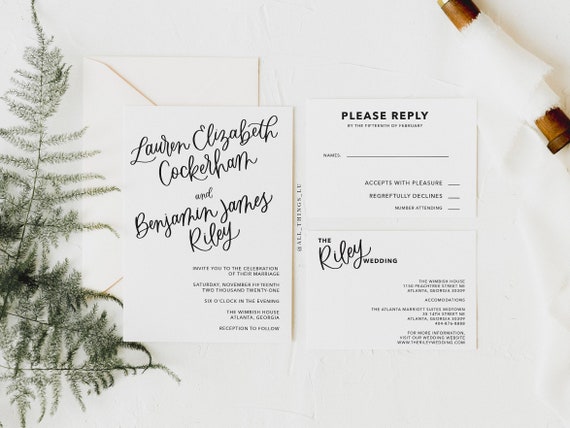 Lauren Elizabeth
Cockerham
and
Benjamin James
Riley
INVITE YOU TO THE CELEBRATION
OF THEIR MARRIAGE
SATURDAY, NOVEMBER FIFTEENTH
TWO THOUSAND TWENTY-ONE
SIX O'CLOCK IN THE EVENING
THE WIMBISH HOUSE
ATLANTA, GEORGIA
RECEPTION TO FOLLOW
@ALL_THINGS_LU
PLEASE REPLY
BY THE FIFTEENTH OF FEBRUARY
NAMES:
ACCEPTS WITH PLEASURE
REGREFTULLY DECLINES
NUMBER ATTENDING
THE
Riley WEDDING
THE WIMBISH HOUSE
1150 PEACHTREE STREET NE
ATLANTA, GEORGIA 30309
ACCOMODATIONS
THE ATLANTA MARRIOTT SUITES MIDTOWN
35 14TH STREET NE
ATLANTA, GEORGIA 30309
404-876-8888
FOR MORE INFORMATION,
VISIT OUR WEDDING WEBSITE
WWW.THERILEYWEDDING.COM